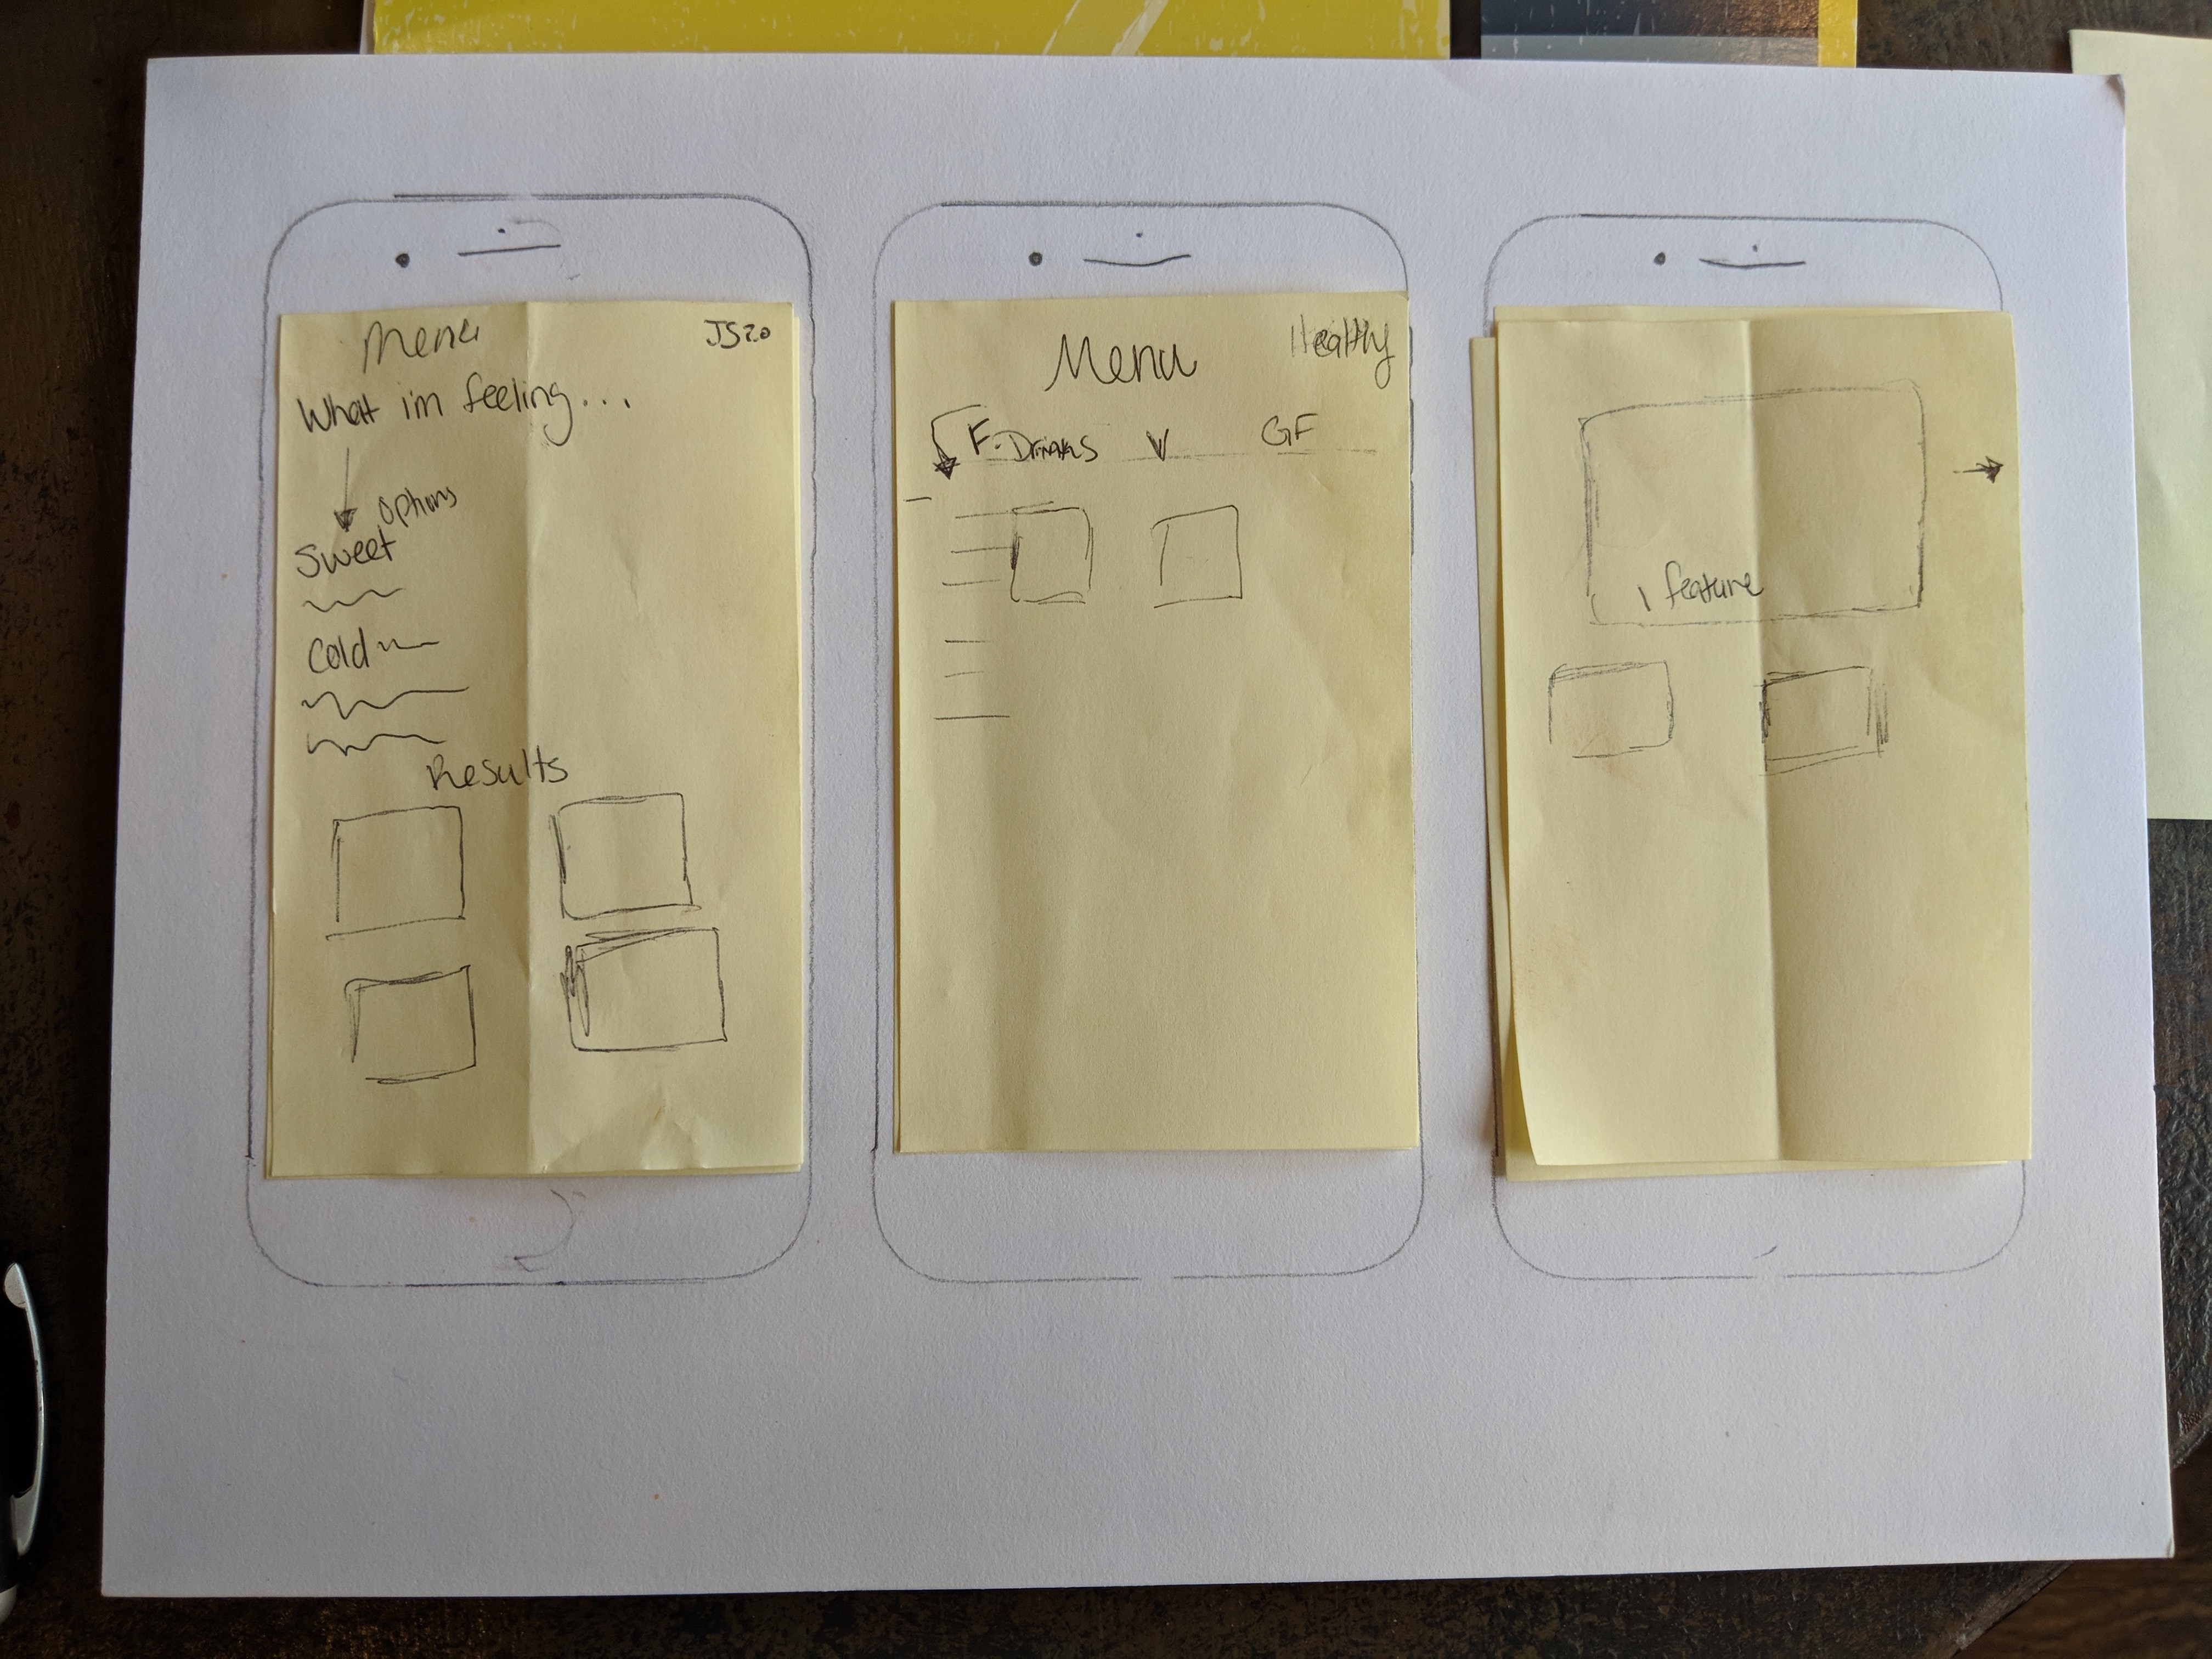 Menu
JS2.0
What i'm feeling...
options
Sweet
Cold
Results
Menu
Healthy
F. Drinks V GF
1 feature